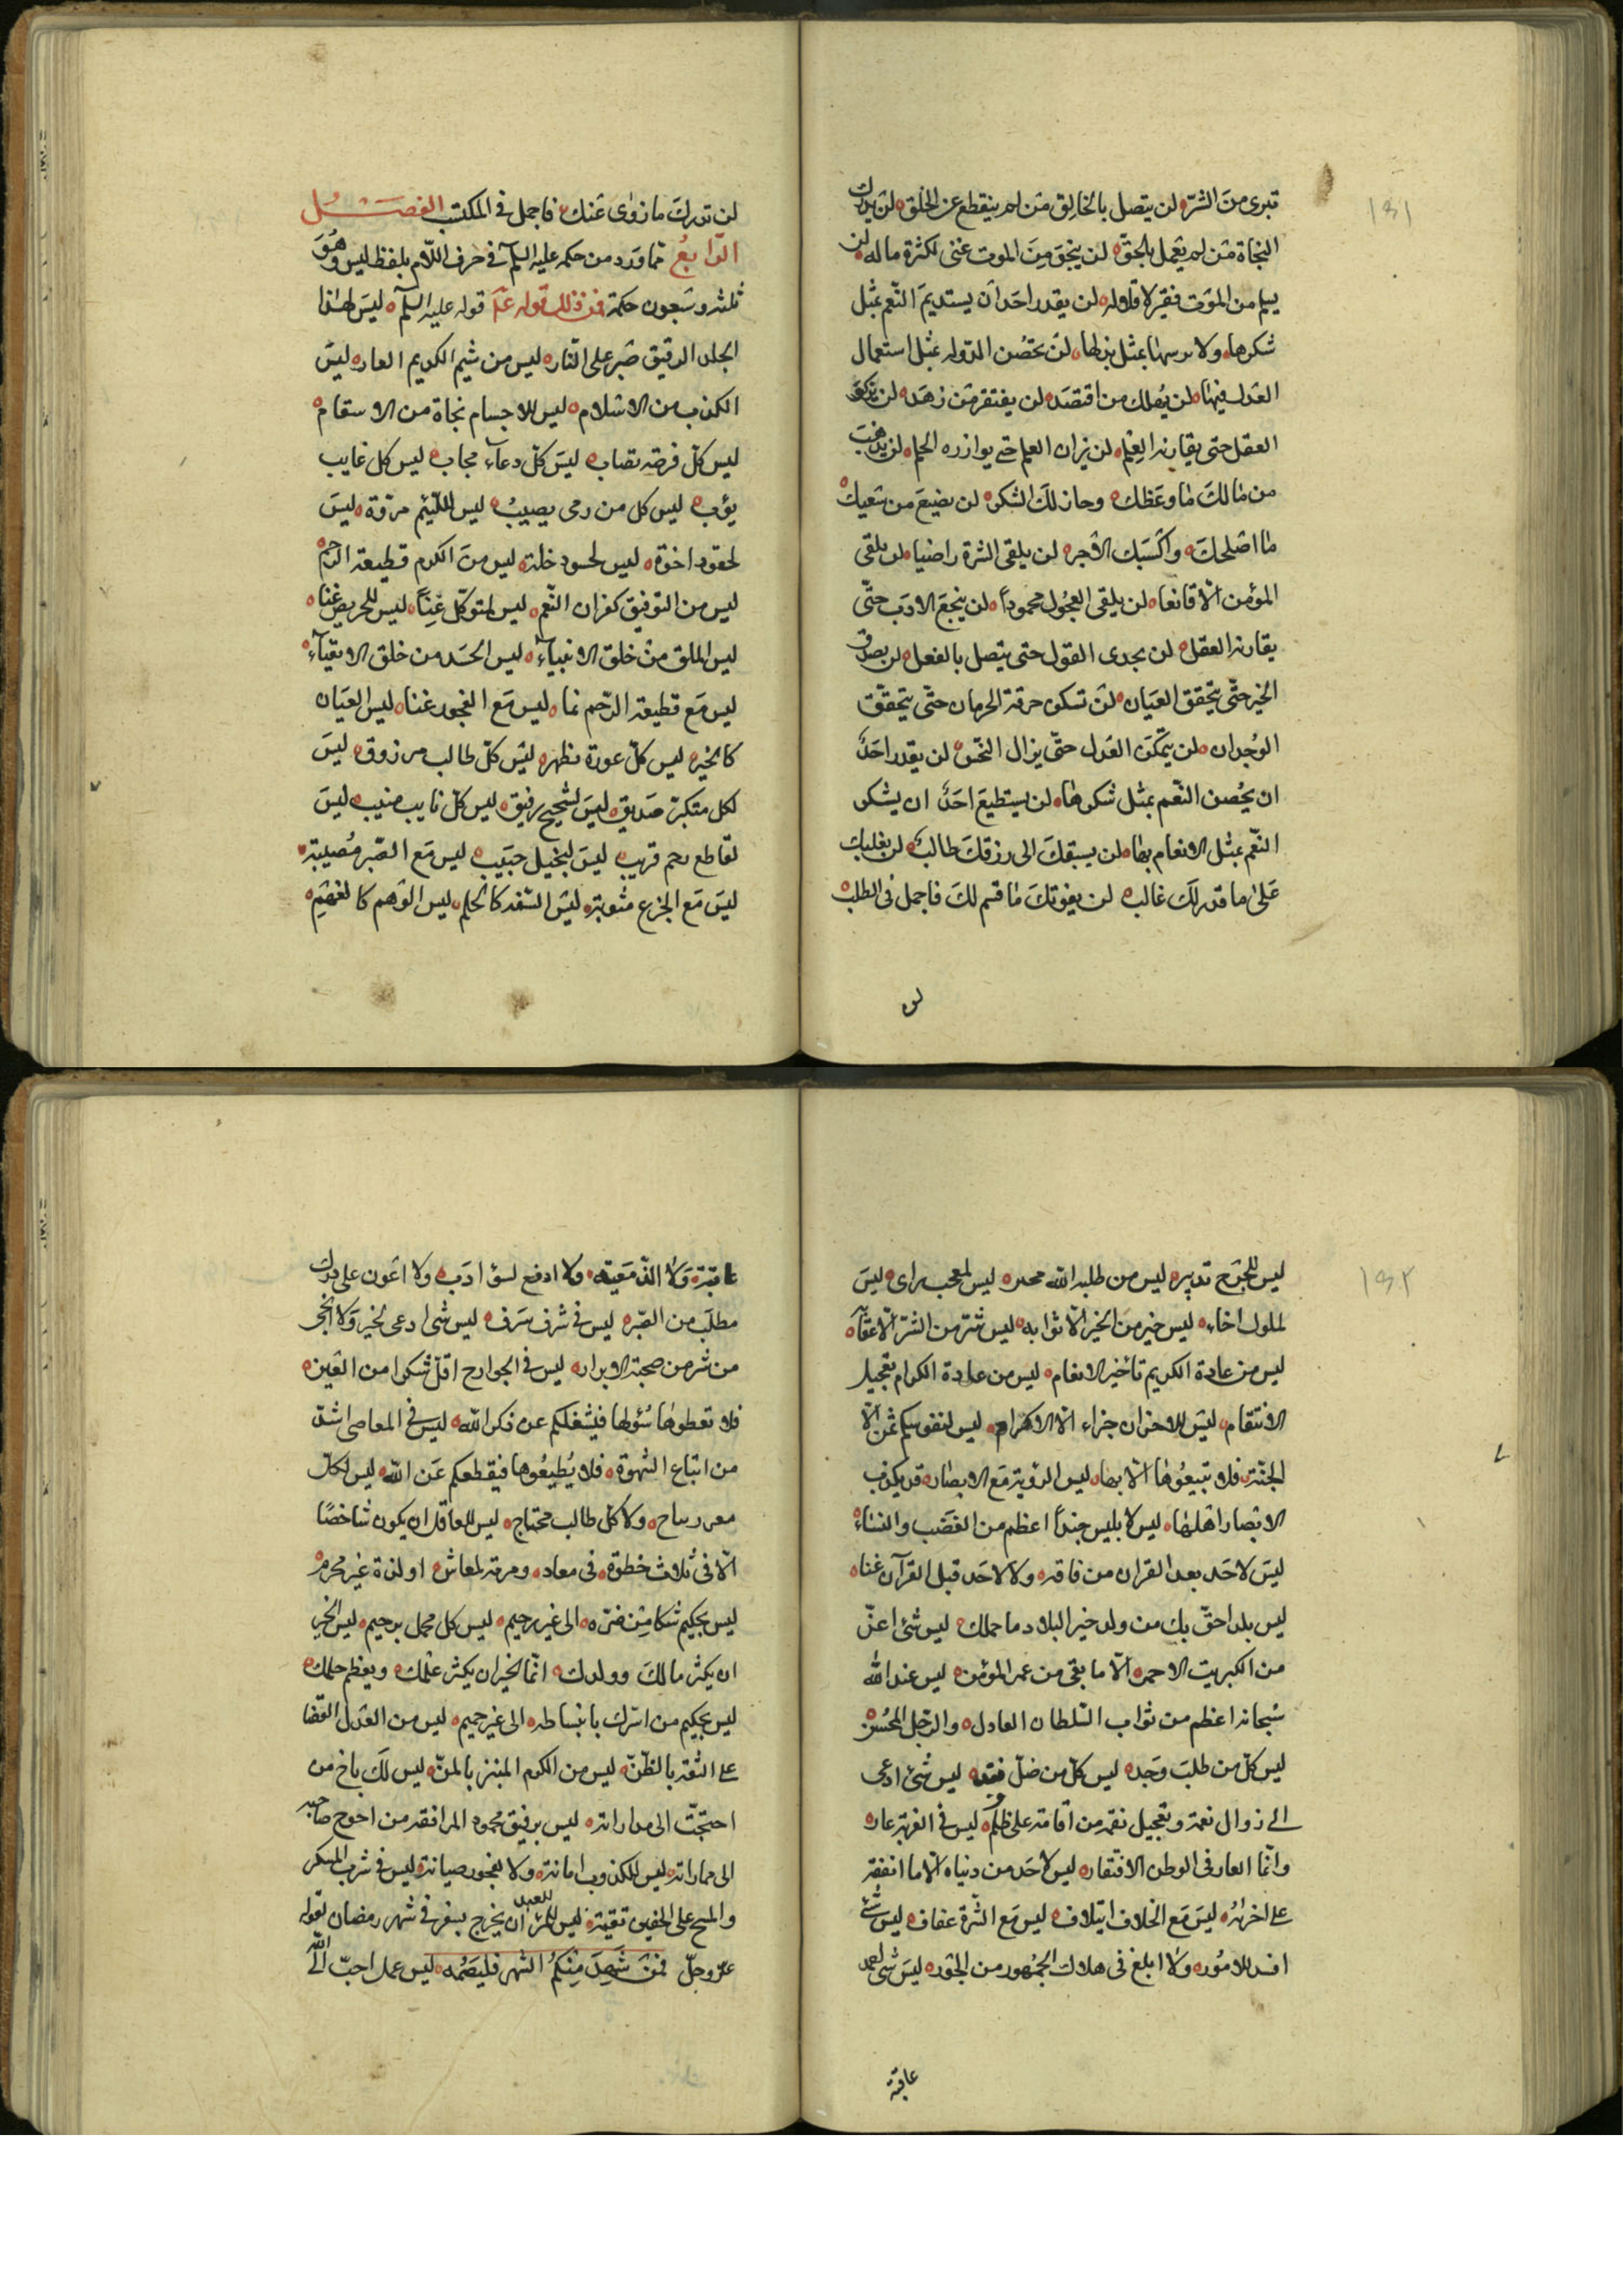 ١٥١
تبرى من الشره لن يتصل بالخالق من لم ينقطع عن الخلق لن يدرك
النجاة من لم يعمل بالحق لن ينجو من الموت غنى لكثرة ماله لن
يسلم من الموت فقير لاقلاله لن يقدر احد ان يستديم النعم بمثل
شكرها ولا يرسها بمثل بذلها لن تحصن الدوله بمثل استعمال
العدل فيها لن يهلك من اقتصد لن يفتقر من زهد لن يزكو
العقل حتى يقارنه العلم لن يزان العلم حتى يوازره الحلم لن يذهب
من مالك ما وعظك وحاز لك الشكر لن يضيع من سعيك
ما اصلحك واكسبك الاجر لن يلقى الشره راضيا لن يلقى
المؤمن الا قانعا لن يلقى العجول محموداً لن ينجع الادب حتى
يقارنه العقل لن يجدى القول حتى يتصل بالفعل لن يصدق
الخبر حتى يتحقق العيان لن تسكن حرقة الحرمان حتى يتحقق
الوجدان لن يتمكن العدل حتى يزال النحس لن يقدر احد
ان يحصن النعم بمثل شكرها لن يستطيع احد ان يشكر
النعم بمثل الانعام بها لن يسبقك الى رزقك طالب لن يغلبك
على ما قدر لك غالب لن يفوتك ما قسم لك فاجمل فى الطلب
لن
لن تدرك ما زوى عنك فاجمل فى المكتسب الفصل
الرابع مما ورد من حكمه عليه السلم فى حرف اللام بلفظ ليس وهو
ثلثه وسبعون حكمة فمن ذلك قوله عليه السلم ليس لهذا
الجلد الرقيق صبر على النار ليس من شيم الكريم العار ليس
الكذب من الاسلام ليس للاجسام نجاة من الاسقام
ليس كل فرصه تصاب ليس كل دعاء مجاب ليس كل غايب
يؤب ليس كل من رمى يصيب ليس للئيم مروة ليس
لحقود اخوة ليس لحسود خلة ليس من الكرم قطيعة الرحم
ليس من التوفيق كفران النعم ليس لمتوكل غنا ليس للحريص غنا
ليس الملق من خلق الانبياء ليس الحسد من خلق الاتقياء
ليس مع قطيعة الرحم نما ليس مع الفجور غنا ليس العيان
كالخبر ليس كل عورة تظهر ليس كل طالب مرزوق ليس
لكل متكبر صديق ليس لشحيح رفيق ليس كل نايب منيب ليس
لقاطع رحم قريب ليس لبخيل حبيب ليس مع الصبر مصيبة
ليس مع الجزع مثوبة ليس السفه كالحلم ليس الوهم كالفهم
١٥٢
ليس للجوج تدبير ليس من طلبه الله محدر ليس لمعجب راى ليس
لملول اخاء ليس خير من الخير الا ثوابه ليس شر من الشر الا عقابه
ليس من عادة الكريم تاخير الانعام ليس من عادة الكرام تعجيل
الانتقام ليس للاحزان جزاء الا الاكرام ليس لنفوسكم ثمن الا
الجنة فلا تبيعوها الا بها ليس الرؤية مع الابصار قد يكذب
الابصار اهلها ليس لابليس جنداً اعظم من الغضب والنساء
ليس لاحد بعد القران من فاقه ولا لاحد قبل القرآن غنا
ليس بلد احق بك من ولد خير البلاد ما حملك ليس شئ اعز
من الكبريت الاحمر الا ما بقى من عمر المؤمن ليس عند الله
سبحانه اعظم من ثواب السلطان العادل والرجل المحسن
ليس كل من طلب وجد ليس كل من ضل فقد ليس شئ ادعى
الى زوال نعمة وتعجيل نقمه من اقامة على ظلم ليس فى الغربة عار
وانما العار فى الوطن الافتقار ليس لاحد من دنياه الا ما انفقه
على اخراه ليس مع الخلاف ايتلاف ليس مع الشره عفاف ليس شئ
افسد للامور ولا ابلغ فى هلاك الجمهور من الجور ليس شئ احمد
عاقبة
عاقبة ولا الذ مغبة ولا ادفع لسؤ ادب ولا اعون على درك
مطلب من الصبر ليس فى شرف سرف ليس شى ادعى لخير ولا انجى
من شر من صحبة الابرار ليس فى الجوارح اقل شكرا من العين
فلا تعطوها سؤلها فيشغلكم عن ذكر الله ليس فى المعاصى اشد
من اتباع الشهوة فلا يطيعوها فيقطعكم عن الله ليس لكل
ولا كل طالب محتاج ليس للعاقل ان يكون شاخصا
الا فى ثلاث خطوة فى معاد ومرمة لمعاش او لذة غير محرم
ليس بحكيم شكا من ضره الى غير رحيم ليس كل مجمل برحيم ليس الخير
ان يكثر مالك وولدك انما الخير ان يكثر علمك ويعظم حلمك
ليس بحكيم من ابتذل بانبساطه الى غير حميم ليس من العدل القضا
على الثقه بالظن ليس من الكرم المبنز بالمن ليس لك باخ من
احتجت الى مداراته ليس برفيق محمود المرافقه من احوج صاحبه
الى مماراته ليس لكذوب امانة ولا لفجور صيانة ليس فى شرب المسكر
والمسح على الخفين تقيه ليس للعبد ان يخرج بسفر فى شهر رمضان لقوله
عز وجل فمن شهد منكم الشهر فليصمه ليس عمل احب الى الله